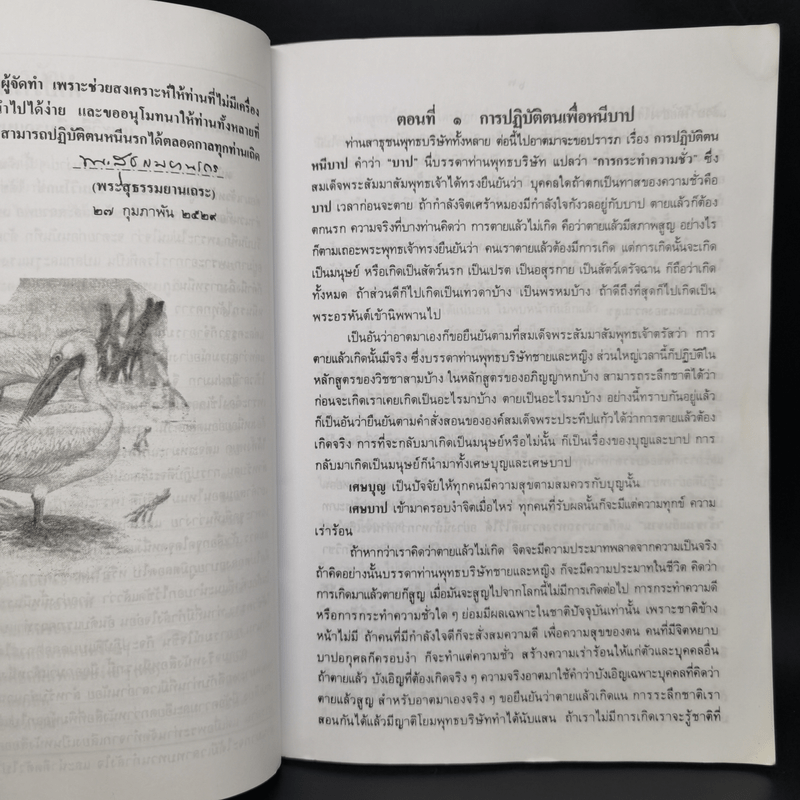 ผู้จัดทำ เพราะช่วยสงเคราะห์ให้ท่านที่ไม่มีเครื่อง
ทำไปได้ง่าย และขออนุโมทนาให้ท่านทั้งหลายที่
สามารถปฏิบัติตนหนีนรกได้ตลอดกาลทุกท่านเถิด
(พระสุธรรมยานเถระ)
๒๗ กุมภาพัน ๒๕๒๙
ตอนที่ ๑ การปฏิบัติตนเพื่อหนีบาป
ท่านสาธุชนพุทธบริษัททั้งหลาย ต่อนี้ไปอาตมาจะขอปรารภ เรื่อง การปฏิบัติตน
หนีบาป คำว่า "บาป" นี่บรรดาท่านพุทธบริษัท แปลว่า "การกระทำความชั่ว" ซึ่ง
สมเด็จพระสัมมาสัมพุทธเจ้าได้ทรงยืนยันว่า บุคคลใดถ้าตกเป็นทาสของความชั่วคือ
บาป เวลาก่อนจะตาย ถ้ากำลังจิตเศร้าหมองมีกำลังใจกังวลอยู่กับบาป ตายแล้วก็ต้อง
ตกนรก ความจริงที่บางท่านคิดว่า การตายแล้วไม่เกิด คือว่าตายแล้วมีสภาพสูญ อย่างไร
ก็ตามเถอะพระพุทธเจ้าทรงยืนยันว่า คนเราตายแล้วต้องมีการเกิด แต่การเกิดนั้นจะเกิด
เป็นมนุษย์ หรือเกิดเป็นสัตว์นรก เป็นเปรต เป็นอสุรกาย เป็นสัตว์เดรัจฉาน ก็ถือว่าเกิด
ทั้งหมด ถ้าส่วนดีก็ไปเกิดเป็นเทวดาบ้าง เป็นพรหมบ้าง ถ้าดีถึงที่สุดก็ไปเกิดเป็น
พระอรหันต์เข้านิพพานไป
เป็นอันว่าอาตมาเองก็ขอยืนยันตามที่สมเด็จพระสัมมาสัมพุทธเจ้าตรัสว่า การ
ตายแล้วเกิดนั้นมีจริง ซึ่งบรรดาท่านพุทธบริษัทชายและหญิง ส่วนใหญ่เวลานี้ก็ปฏิบัติใน
หลักสูตรของวิชชาสามบ้าง ในหลักสูตรของอภิญญาหกบ้าง สามารถระลึกชาติได้ว่า
ก่อนจะเกิดเราเคยเกิดเป็นอะไรมาบ้าง ตายเป็นอะไรมาบ้าง อย่างนี้ทราบกันอยู่แล้ว
ก็เป็นอันว่ายืนยันตามคำสั่งสอนขององค์สมเด็จพระประทีปแก้วได้ว่าการตายแล้วต้อง
เกิดจริง การที่จะกลับมาเกิดเป็นมนุษย์หรือไม่นั้น ก็เป็นเรื่องของบุญและบาป การ
กลับมาเกิดเป็นมนุษย์ก็นำมาทั้งเศษบุญและเศษบาป
เศษบุญ เป็นปัจจัยให้ทุกคนมีความสุขตามสมควรกับบุญนั้น
เศษบาป เข้ามาครอบงำจิตเมื่อไหร่ ทุกคนที่รับผลนั้นก็จะมีแต่ความทุกข์ ความ
เร่าร้อน
ถ้าหากว่าเราคิดว่าตายแล้วไม่เกิด จิตจะมีความประมาทพลาดจากความเป็นจริง
ถ้าคิดอย่างนั้นบรรดาท่านพุทธบริษัทชายและหญิง ก็จะมีความประมาทในชีวิต คิดว่า
การเกิดมาแล้วตายก็สูญ เมื่อมันจะสูญไปจากโลกนี้ไม่มีการเกิดต่อไป การกระทำความดี
หรือการกระทำความชั่วใด ๆ ย่อมมีผลเฉพาะในชาติปัจจุบันเท่านั้น เพราะชาติข้าง
หน้าไม่มี ถ้าคนที่มีกำลังใจดีก็จะสั่งสมความดี เพื่อความสุขของตน คนที่มีจิตหยาบ
บาปอกุศลก็ครอบงำ ก็จะทำแต่ความชั่ว สร้างความเร่าร้อนให้แก่ตัวและบุคคลอื่น
ถ้าตายแล้ว บังเอิญที่ต้องเกิดจริง ๆ ความจริงอาตมาใช้คำว่าบังเอิญเฉพาะบุคคลที่คิดว่า
ตายแล้วสูญ สำหรับอาตมาเองจริง ๆ ขอยืนยันว่าตายแล้วเกิดแน่ การระลึกชาติเรา
สอนกันได้แล้วมีญาติโยมพุทธบริษัททำได้นับแสน ถ้าเราไม่มีการเกิดเราจะรู้ชาติที่